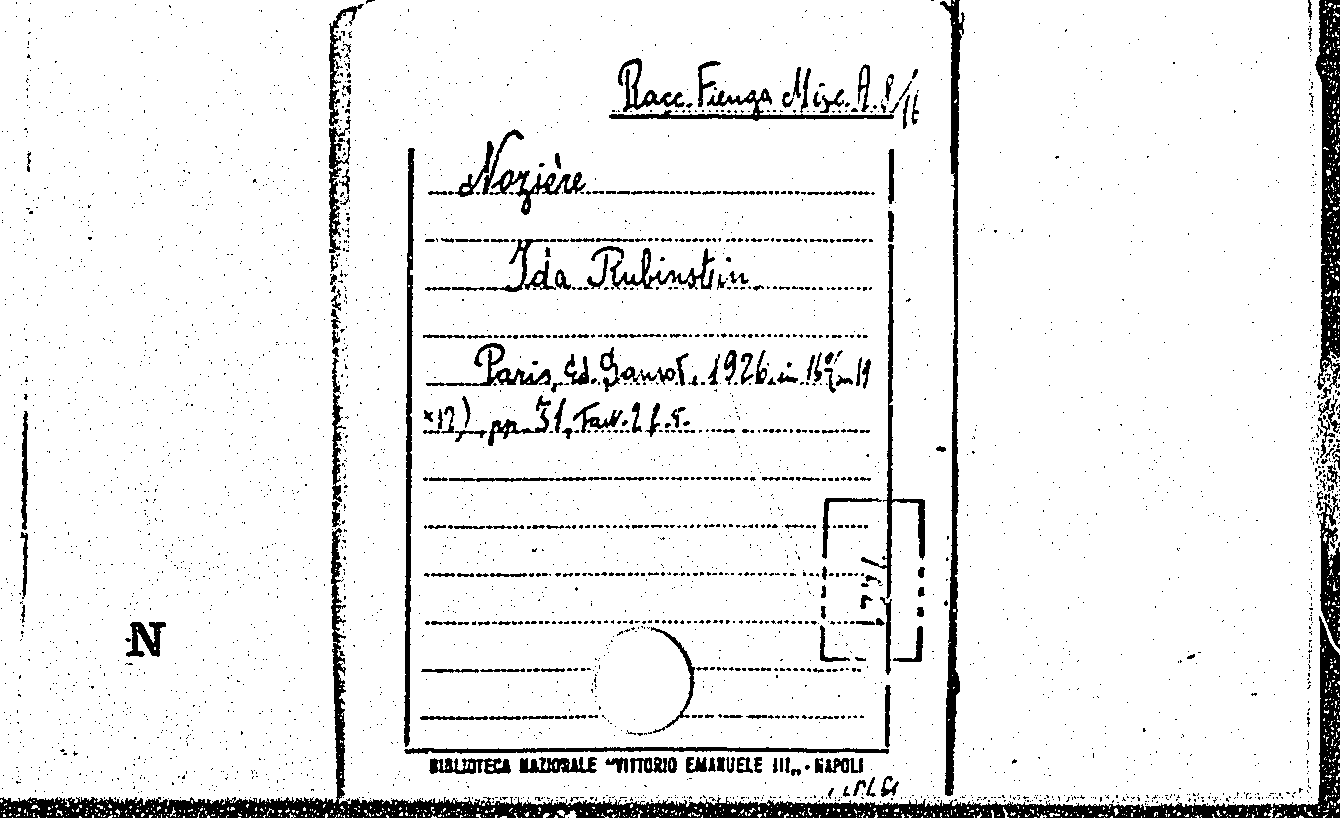 Racc. Fienga Misc. A. 8/16
Nozière
Ida Rubinstein.
Paris, Ed. Sansot, 1926, in 16º (m 19
×12), pp. 31, Tavv. 2 f. t.
N
BIBLIOTECA NAZIONALE "VITTORIO EMANUELE III„ - NAPOLI